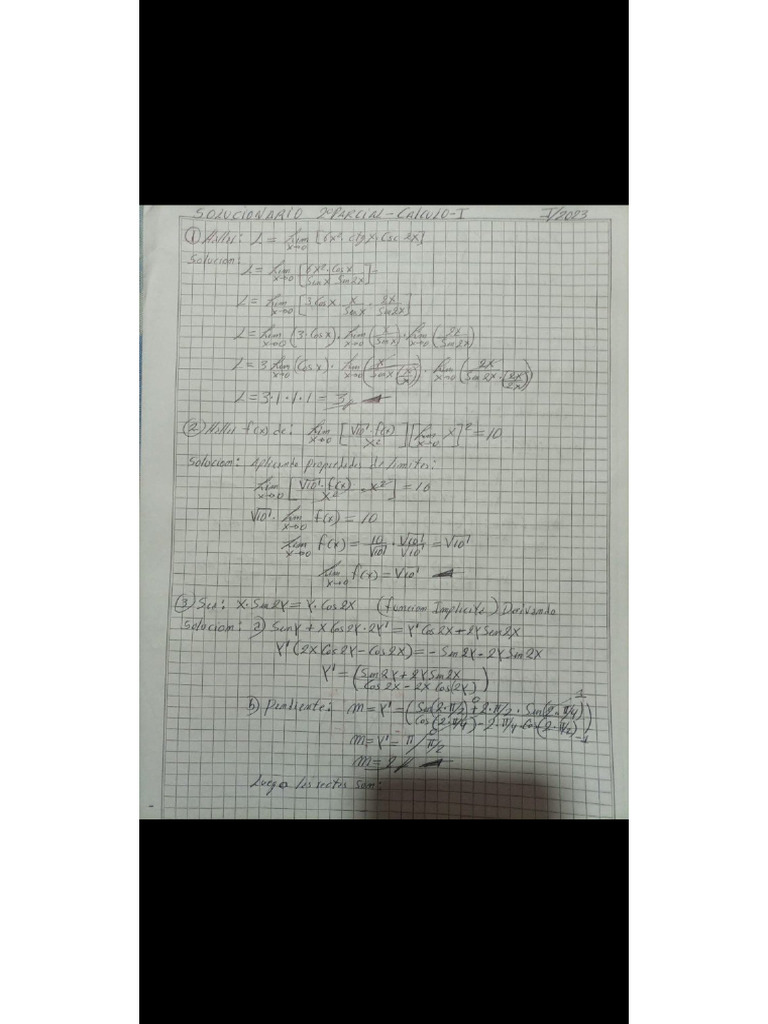 SOLUCIONARIO 2º PARCIAL - CALCULO - I I/2023
① Hallar: L = Lim x→0 [6x² · ctgx · Csc 2x]
Solucion:
L = Lim x→0 [6x² · Cos x / Sen x Sen 2x]
L = Lim x→0 [3 Cos x · x/Sen x · 2x/Sen 2x]
L = Lim x→0 (3 · Cos x) · Lim x→0 (x/Sen x) · Lim x→0 (2x/Sen 2x)
L = 3 Lim x→0 (Cos x) · Lim x→0 (x/Sen x (x/x)) · Lim x→0 (2x/Sen 2x · (2x/2x))
L = 3·1·1·1 = 3
② Hallar f(x) de: Lim x→0 [√10 · f(x)/x²] [Lim x→0 x]² = 10
Solucion: Aplicando propiedades de limites:
Lim x→0 [√10 · f(x)/x² · x²] = 10
√10 · Lim x→0 f(x) = 10
Lim x→0 f(x) = 10/√10 · √10/√10 = √10
Lim x→0 f(x) = √10
③ Sea: X·Sen 2Y = Y·Cos 2X (funcion Implicita) Derivando
Solucion: a) Sen Y + X Cos 2Y · 2Y' = Y' Cos 2X + 2Y Sen 2X
Y' (2X Cos 2Y - Cos 2X) = - Sen 2Y - 2Y Sen 2X
Y' = (Sen 2Y + 2Y Sen 2X / Cos 2X - 2X Cos (2Y))
b) Pendiente: m = Y' = (Sen(2·π/2) 0 + 2·π/2 · Sen(2·π/4) 1 / Cos(2·π/4) 0 - 2·π/4 · Cos(2·π/2) -1)
m = Y' = π / π/2
m = 2
Luego las rectas son: